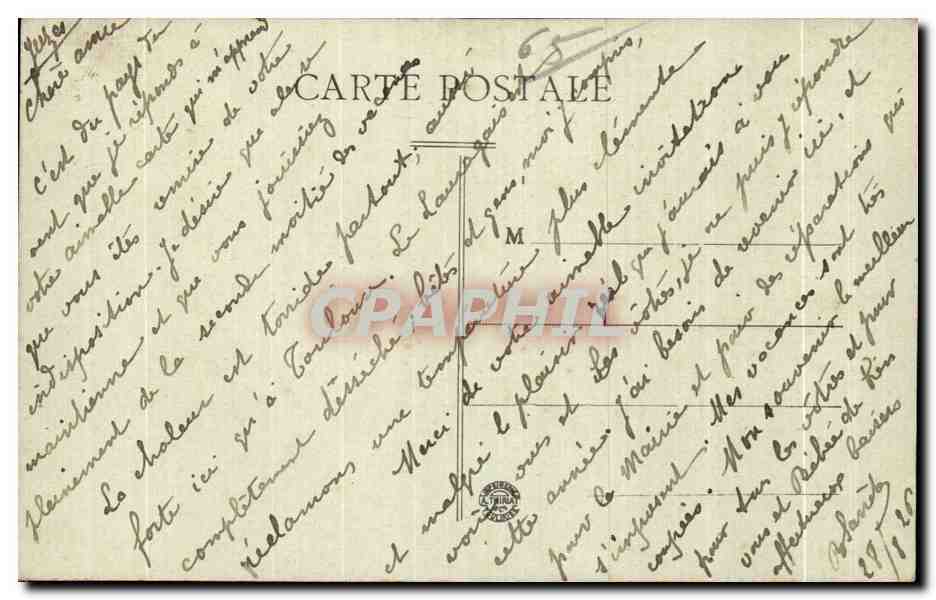 Chère amie
c'est du pays de
que je réponds à
votre aimable carte qui m'apprend
que vous êtes remise de votre
indisposition. Je désire que cela se
maintienne et que vous jouissiez
pleinement de la seconde moitié des vacances
La chaleur est torride partout, aussi
forte ici qu'à Toulouse. Le Lauragais
complètement desséché, bêtes et gens, moi j'
réclamons une température plus clémente
Merci de votre aimable invitation
et malgré le plaisir que j'aurais à vous
voir vous et les vôtres, je ne puis y répondre
cette année. J'ai besoin de revenir ici, et
pour la Mairie et pour des réparations qui
s'imposent. Mes vacances sont très
coupées. Mon souvenir le meilleur
pour tous les vôtres et pour
vous et Bébé de
affectueux baisers
28/8 26
CARTE POSTALE
M
CPARAMA